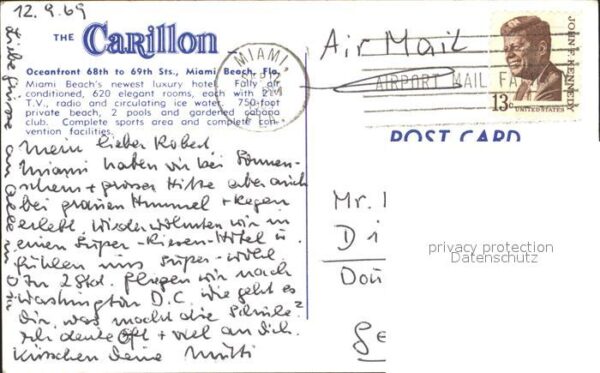 12.9.69
THE Carillon
Oceanfront 68th to 69th Sts., Miami Beach, Fla.
Miami Beach's newest luxury hotel. Fully air
conditioned, 620 elegant rooms, each with 21"
T.V., radio and circulating ice water. 750-foot
private beach, 2 pools and gardened cabana
club. Complete sports area and complete con-
vention facilities.
Mein lieber Robert,
Miami haben wir bei Sonnen-
schein + grosser Hitze aber auch
bei grauem Himmel + Regen
erlebt. Wieder wohnten wir in
einem Super-Riesen-Hotel u.
fühlen uns super-wohl.
In 2 Std. fliegen wir nach
Washington D.C. Wie geht es
Dir, was macht die Schule?
Ich denke oft + viel an Dich.
Küsschen Deine Mutti
Liebe Grüsse an
MIAMI,
Air Mail
AIRPORT MAIL FA
JOHN F. KENNEDY
13c
UNITED STATES
POST CARD
Mr.
D i
privacy protection
Datenschutz
Dou
Ge